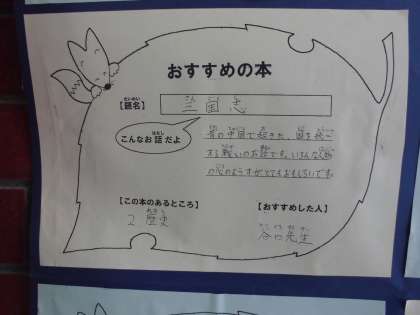 おすすめの本
【題名】 三国志
こんなお話だよ
昔の中国で起きた、国を統一
する戦いのお話です。いろんな人物
の心のようすがとてもおもしろいです。
【この本のあるところ】
2 歴史
【おすすめした人】
谷口先生